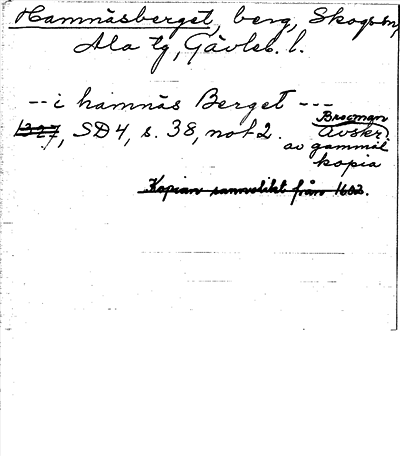 Hamnäsberget, berg, Skogs sn,
Ala tg, Gävleb. l.
-- i hamnäs Berget ---
1327, SD4, s. 38, not 2. Broman
Avskr.
av gammal
kopia
Kopian sannolikt från 1602.